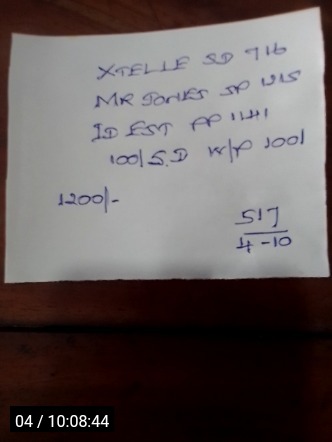 XTELLE SD 716
MR JONES SP 1215
ID EST PP 1141
100/S.D W/P 100/
1200/-
517
4-10
04 / 10:08:44